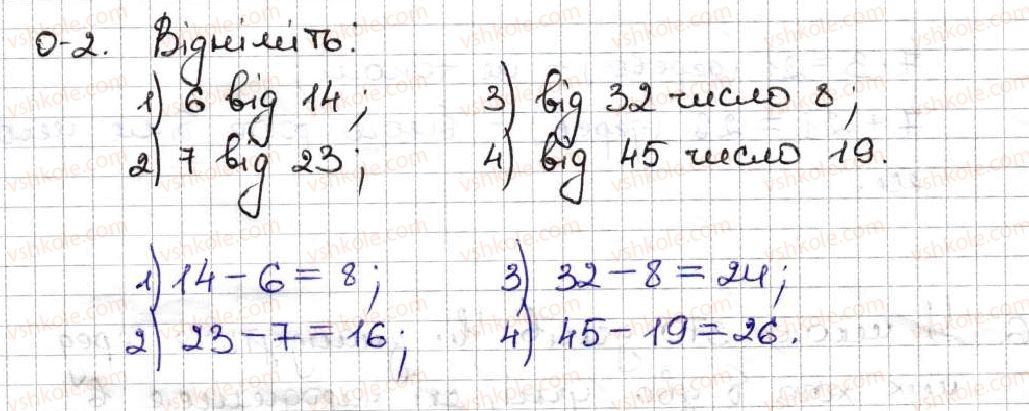 О-2. Відніміть:
1) 6 від 14; 3) від 32 число 8;
2) 7 від 23; 4) від 45 число 19.
1) 14 - 6 = 8; 3) 32 - 8 = 24;
2) 23 - 7 = 16; 4) 45 - 19 = 26.